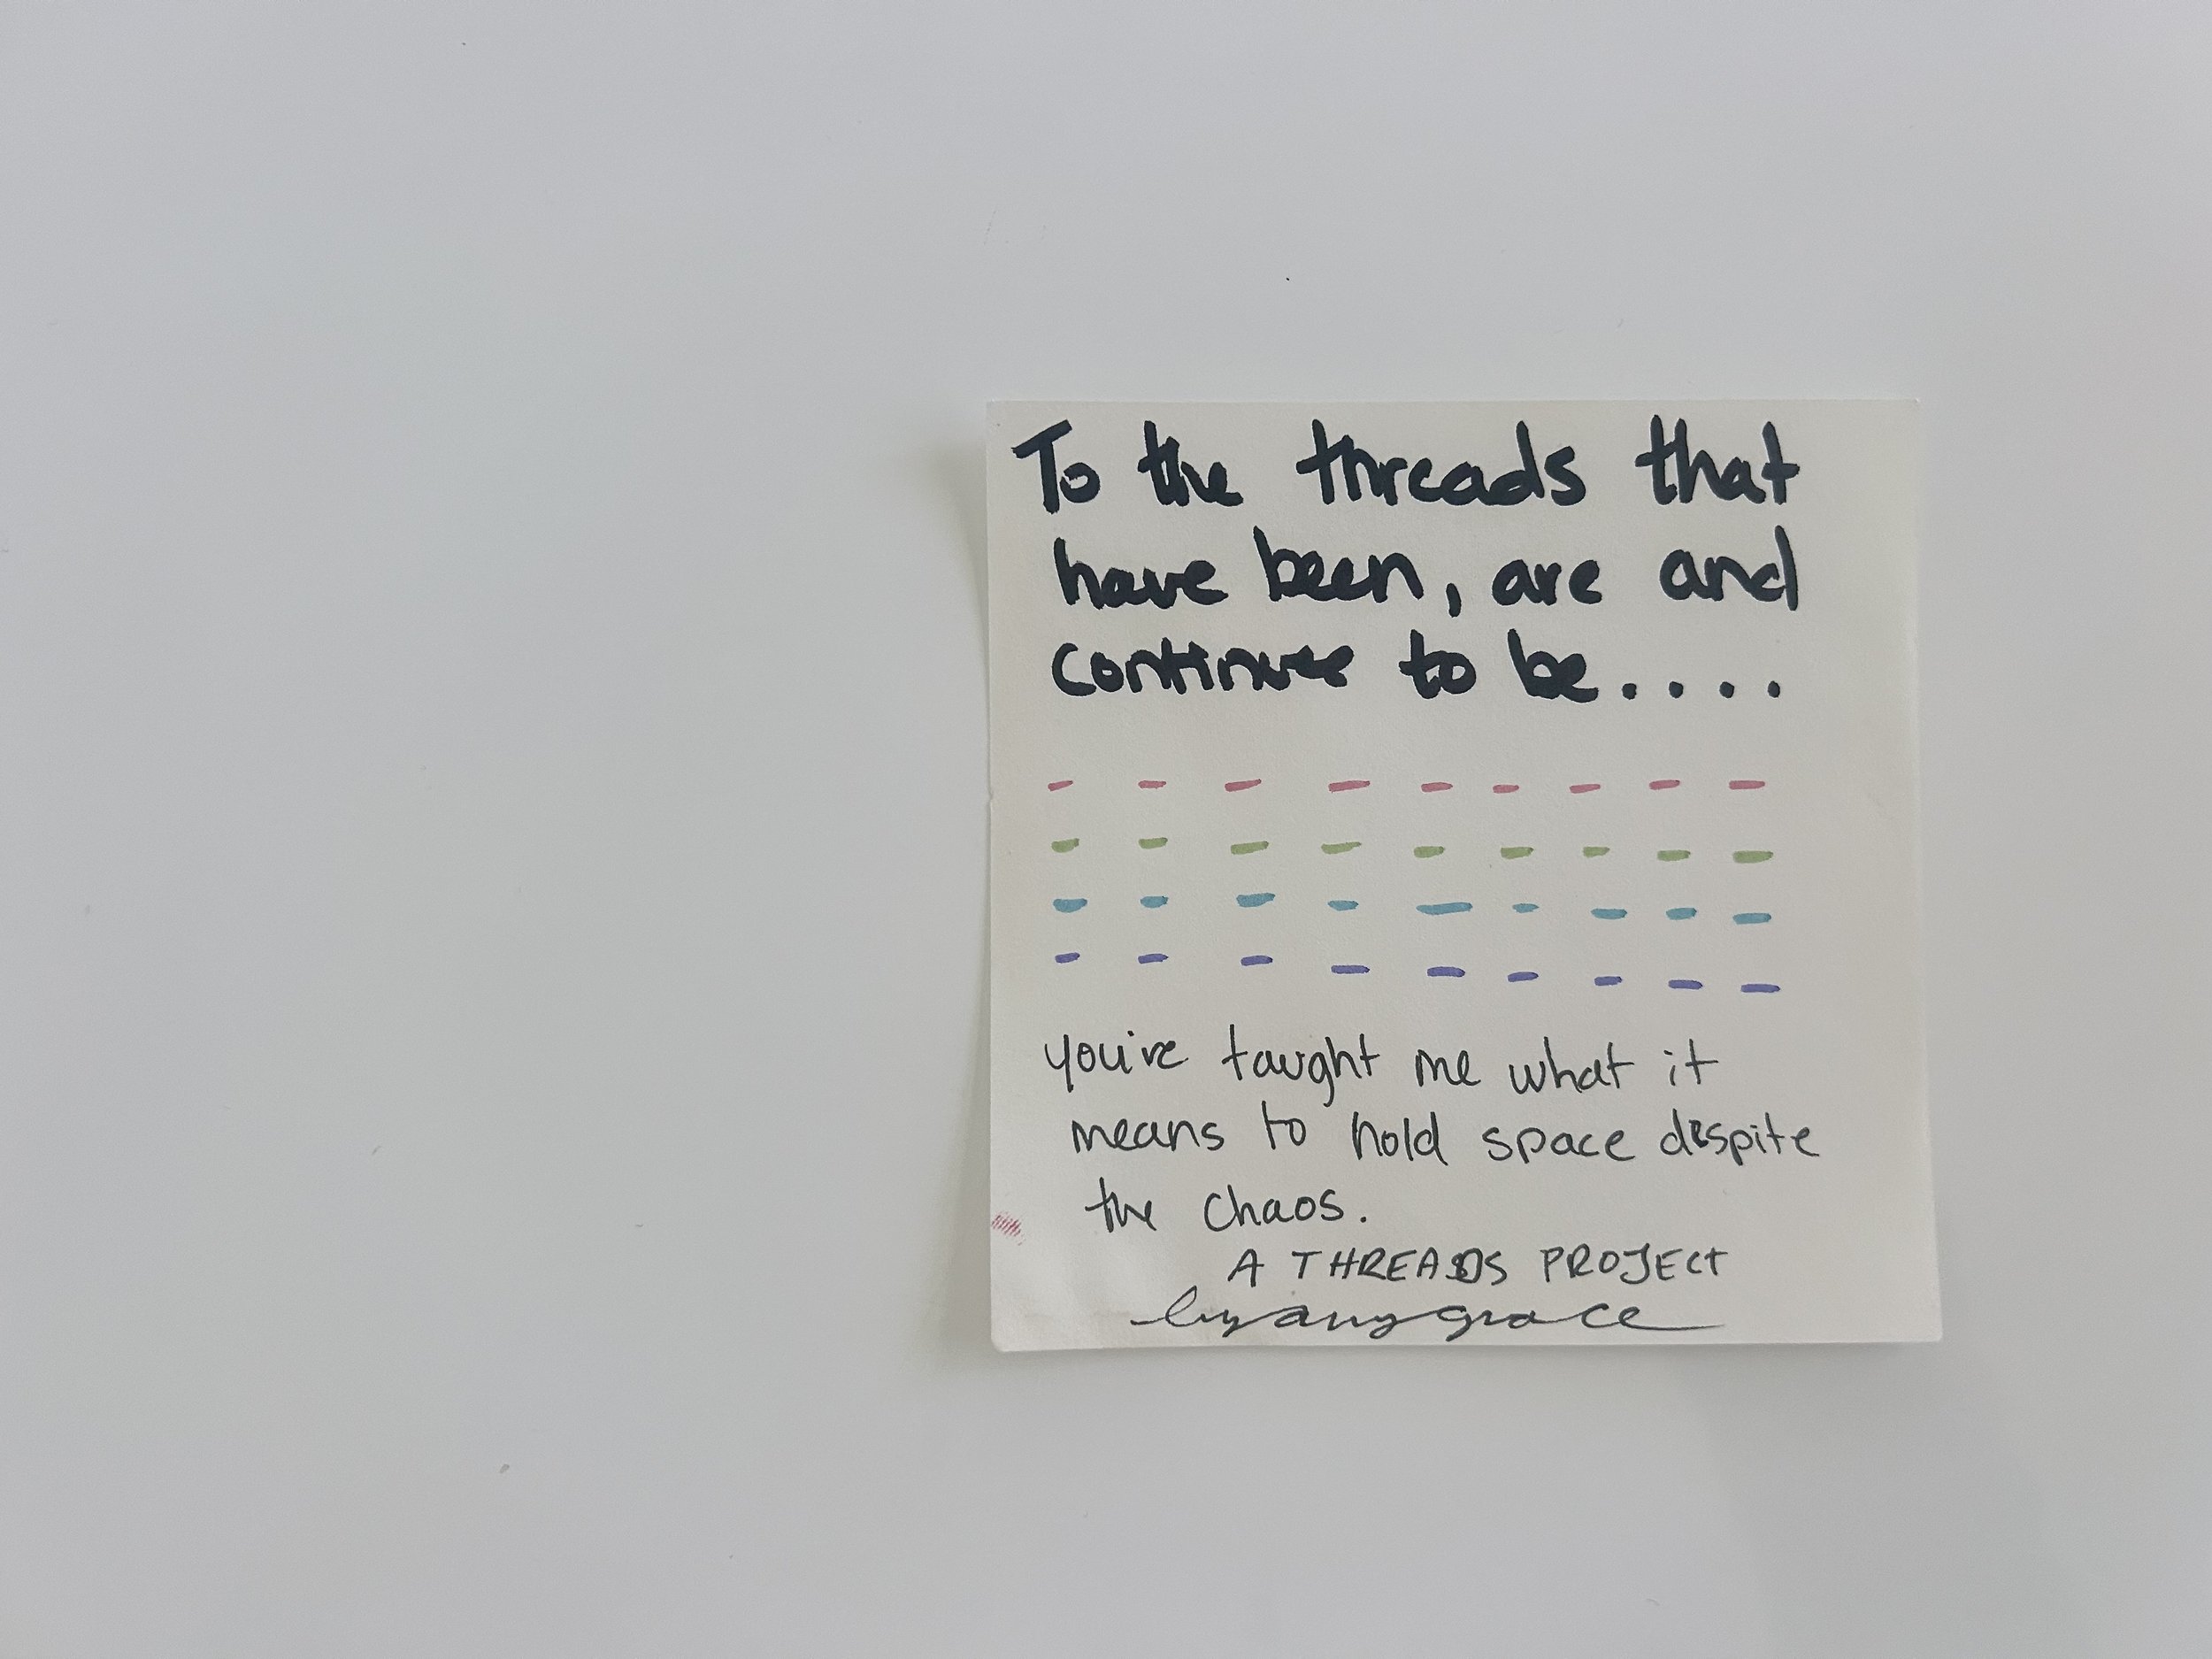 To the threads that
have been, are and
continue to be....
you've taught me what it
means to hold space despite
the chaos.
A THREADS PROJECT
by amy grace